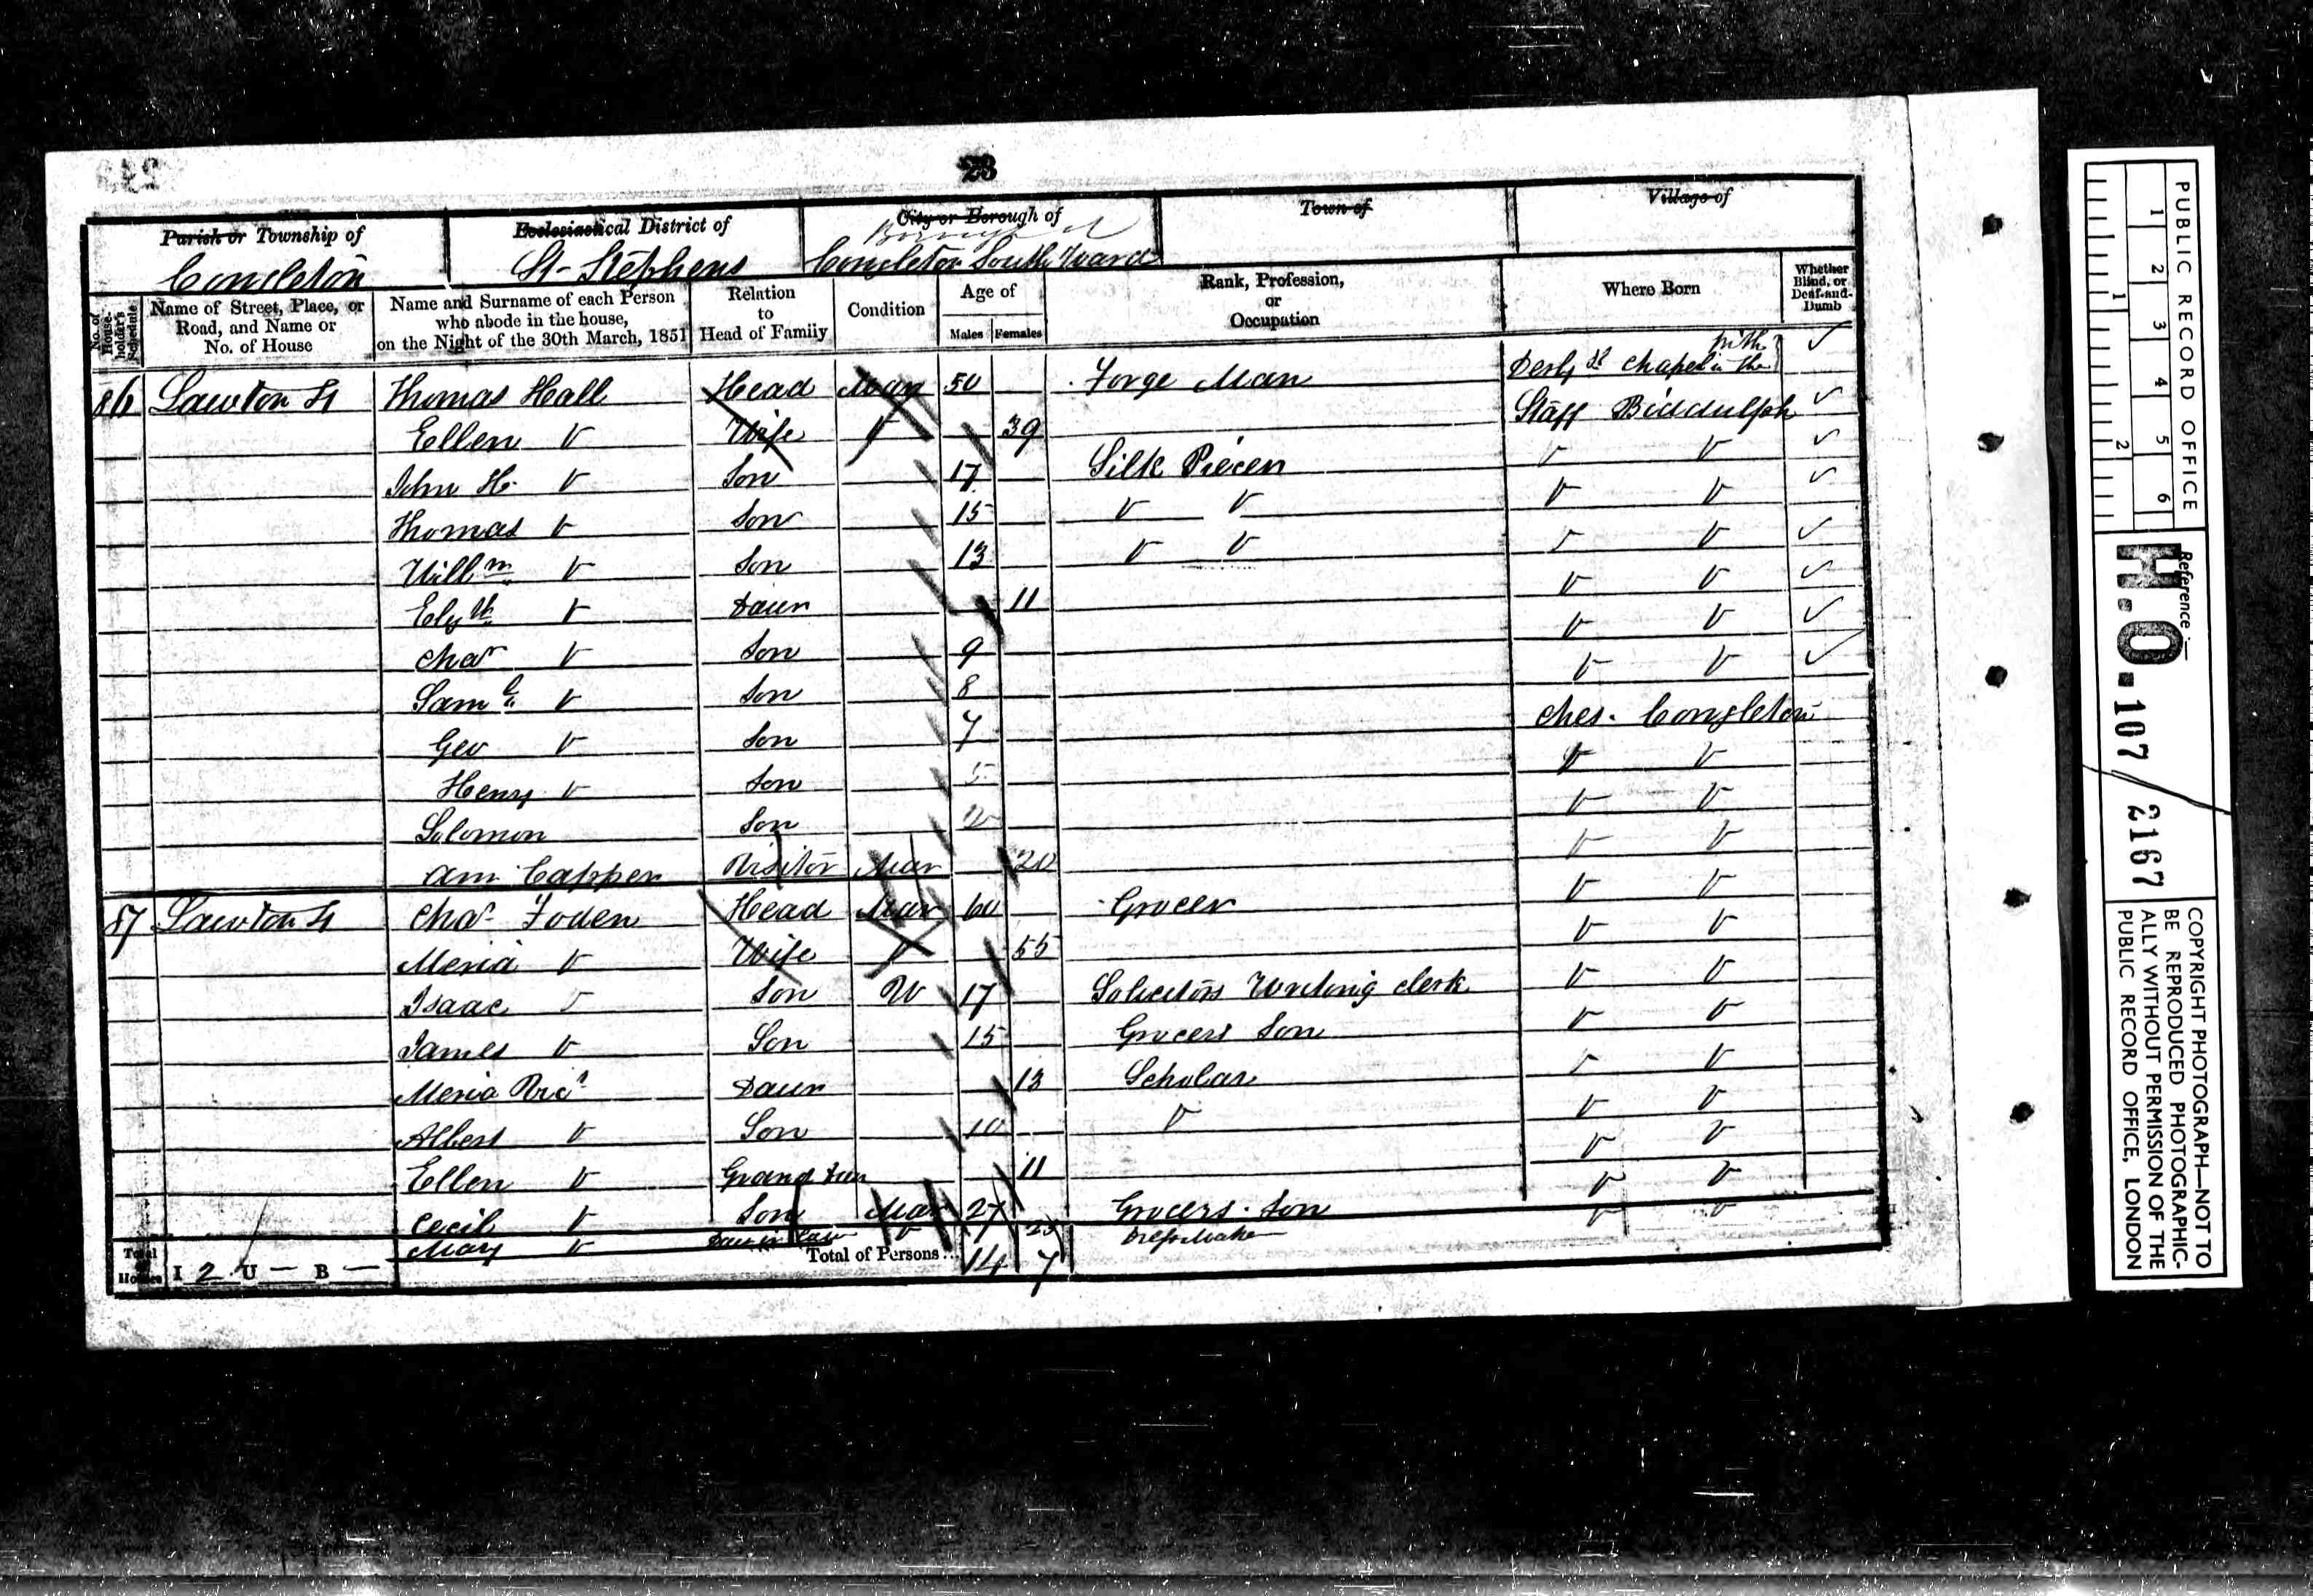 23
Parish or Township of
Congleton
Ecclesiastical District of
St Stephens
City or Borough of
Borough of
Congleton South Ward
Town of
Village of
No. of House-holder's Schedule
Name of Street, Place, or Road, and Name or No. of House
Name and Surname of each Person who abode in the house, on the Night of the 30th March, 1851
Relation to Head of Family
Condition
Age of
Males
Females
Rank, Profession, or Occupation
Where Born
Whether Blind, or Deaf-and-Dumb
86 Lawton St Thomas Hall Head Mar 50 Forge Man Derby Chapel in the Frith
Ellen v Wife v 39 Staff Biddulph
John H. v Son 17 Silk Piecer v v
Thomas v Son 15 v v v v
Willm v Son 13 v v v v
Elizth v Daur 11 v v
Chas v Son 9 v v
Saml v Son 8 v v
Geo v Son 7 Ches. Congleton
Henry v Son 5 v v
Solomon Son 2 v v
Ann Capper Visitor Mar 20 v v
87 Lawton St Chas Foden Head Mar 60 Grocer v v
Meria v Wife v 55 v v
Isaac v Son U 17 Solicitors Writing Clerk v v
James v Son 15 Grocers Son v v
Meria Vica Daur 13 Scholar v v
Albert v Son 10 v v v
Ellen v Grand Daur 11 v v
Cecil v Son Mar 27 Grocers Son v v
Mary v Daur in law v 25 Dress Maker v v
Total of Houses I 2 U — B —
Total of Persons... 14 7
PUBLIC RECORD OFFICE
1 2 3 4 5 6
1 2
Reference:—
H.O. 107 / 2167
COPYRIGHT PHOTOGRAPH—NOT TO
BE REPRODUCED PHOTOGRAPHIC-
ALLY WITHOUT PERMISSION OF THE
PUBLIC RECORD OFFICE, LONDON